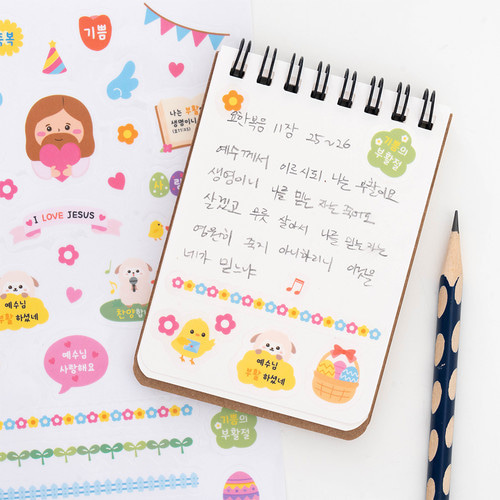 기쁨
축복
나는 부활이요
생명이니
(요11:25)
I LOVE JESUS
사
예수님
부활 하셨네
찬양합
예수님
사랑해요
기쁨의
부활절
요한복음 11장 25~26
기쁨의
부활절
예수께서 이르시되, 나는 부활이요
생명이니 나를 믿는 자는 죽어도
살겠고 무릇 살아서 나를 믿는 자는
영원히 죽지 아니하리니 이것을
네가 믿느냐
예수님
부활 하셨네